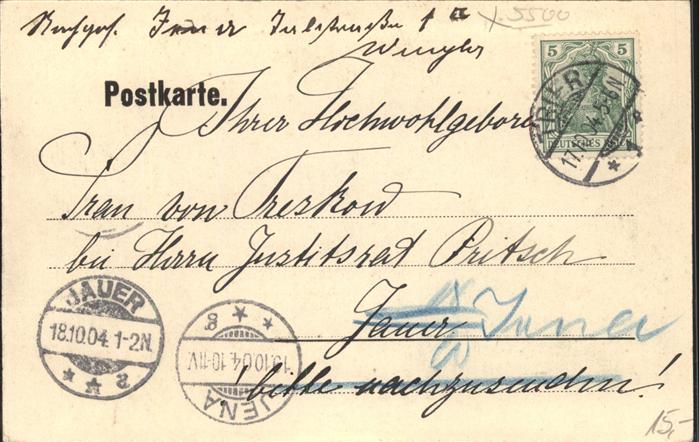 Jena
x 5500
Postkarte.
5 5
DEUTSCHES REICH
TRIER
17.10.04. 5-6N
* 1 *
Ihrer Hochwohlgeboren
Frau von Treskow
bei Herrn Justitsrat Pritsch
Jauer Jena
bitte nachzusenden!
JAUER
18.10.04. 1-2N.
* * a
JENA
10-11V.
* * 8
15,-